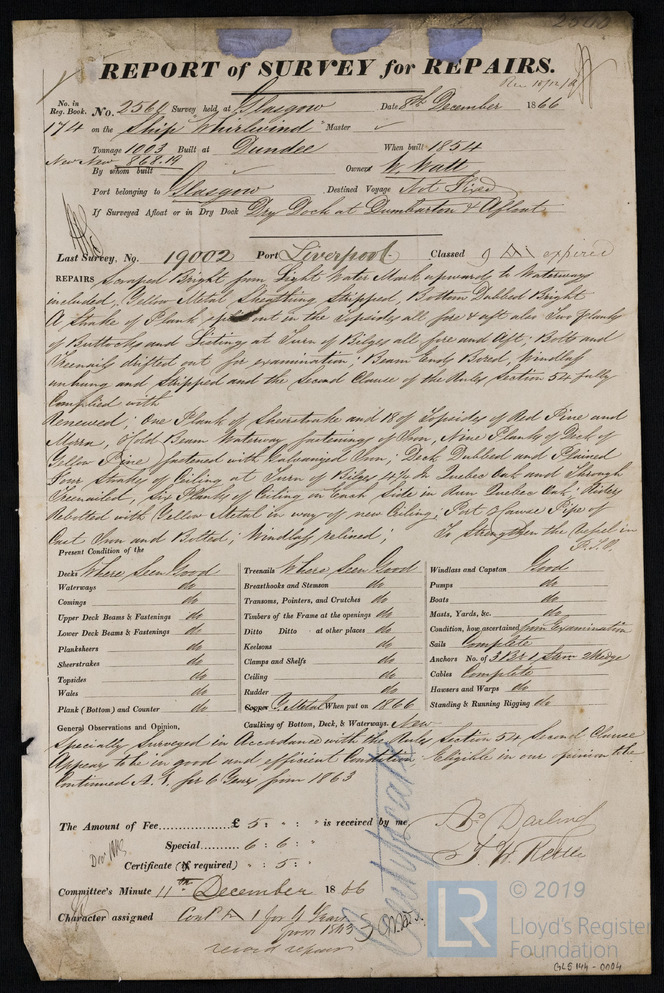 REPORT of SURVEY for REPAIRS.
Rec 10/12/66
No. in Reg. Book. No. 2560 Survey held at Glasgow Date 8th December 1866
174 on the Ship Whirlwind Master
Tonnage 1003 Built at Dundee When built 1854
New Meas 868.19
By whom built Owners W. Watt
Port belonging to Glasgow Destined Voyage Not Fixed
If Surveyed Afloat or in Dry Dock Dry Dock at Dumbarton & Afloat
Last Survey, No. 19002 Port Liverpool Classed 9 A1 expired
REPAIRS Scraped Bright from Light Water Mark upwards to Waterways
included, Yellow Metal Sheathing stripped, Bottom Dubbed Bright
A Strake of Plank out in the Topsides all fore & aft also Two Planks
of Buttocks and Listings at Turn of Bilges all fore and Aft; Bolts and
Treenails drifted out for examination; Beam Ends Bored, Windlass
unhung and stripped and the Second Clause of the Rules Section 54 fully
Complied with
Renewed; One Plank of Sheerstrake and 18 of Topsides of Red Pine and
Morra, Hold Beam Waterway fastenings of Iron, Nine Planks of Deck of
Yellow Pine fastened with Galvanized Iron; Deck Dubbed and Plained
Four Strakes of Ceiling at Turn of Bilges 4½ In Quebec Oak and Through
Treenailed, Six Planks of Ceiling on Each Side in Run Quebec Oak; Riders
Rebolted with Yellow Metal in way of new Ceiling; Port Hawse Pipe of
Cast Iron and Bolted; Windlass relined; To Strengthen the Vessel in
P.T.O.
Present Condition of the
Decks Where Seen Good
Waterways do
Comings do
Upper Deck Beams & Fastenings do
Lower Deck Beams & Fastenings do
Planksheers do
Sheerstrakes do
Topsides do
Wales do
Plank (Bottom) and Counter do
Treenails Where Seen Good
Breasthooks and Stemson do
Transoms, Pointers, and Crutches do
Timbers of the Frame at the openings do
Ditto Ditto at other places do
Keelsons do
Clamps and Shelfs do
Ceiling do
Rudder do
Copper Y. Metal When put on 1866
Caulking of Bottom, Deck, & Waterways. New
Windlass and Capstan Good
Pumps do
Boats do
Masts, Yards, &c. do
Condition, how ascertained from Examination
Sails Complete
Anchors No. of 3 Br 1 Stream 2 Kedge
Cables Complete
Hawsers and Warps do
Standing & Running Rigging do
General Observations and Opinion,
Specially Surveyed in Accordance with the Rules Section 54 Second Clause
Appears to be in good and efficient Condition. Eligible in our opinion to be
Continued A.1. for 6 Years from 1863
The Amount of Fee £ 5 : " : " is received by me
Special 6 : 6 : "
Certificate (if required) " : 5 : "
Committee's Minute 11th December 1866
Character assigned Contd A 1 for 4 Years
from 1863
record repairs
Certificate
© 2019
LR
Lloyd's Register
Foundation
GLS 144 - 0004